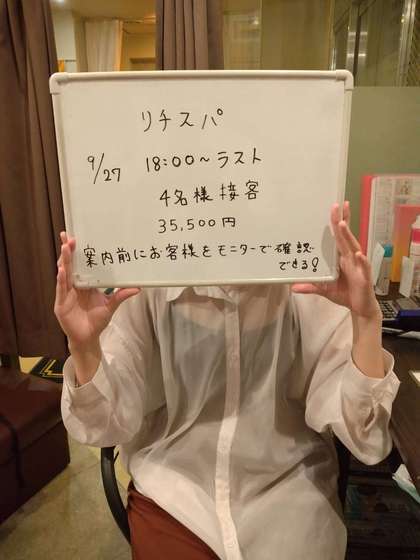 リチスパ
9/27 18:00〜ラスト
4名様接客
35,500円
案内前にお客様をモニターで確認
できる!